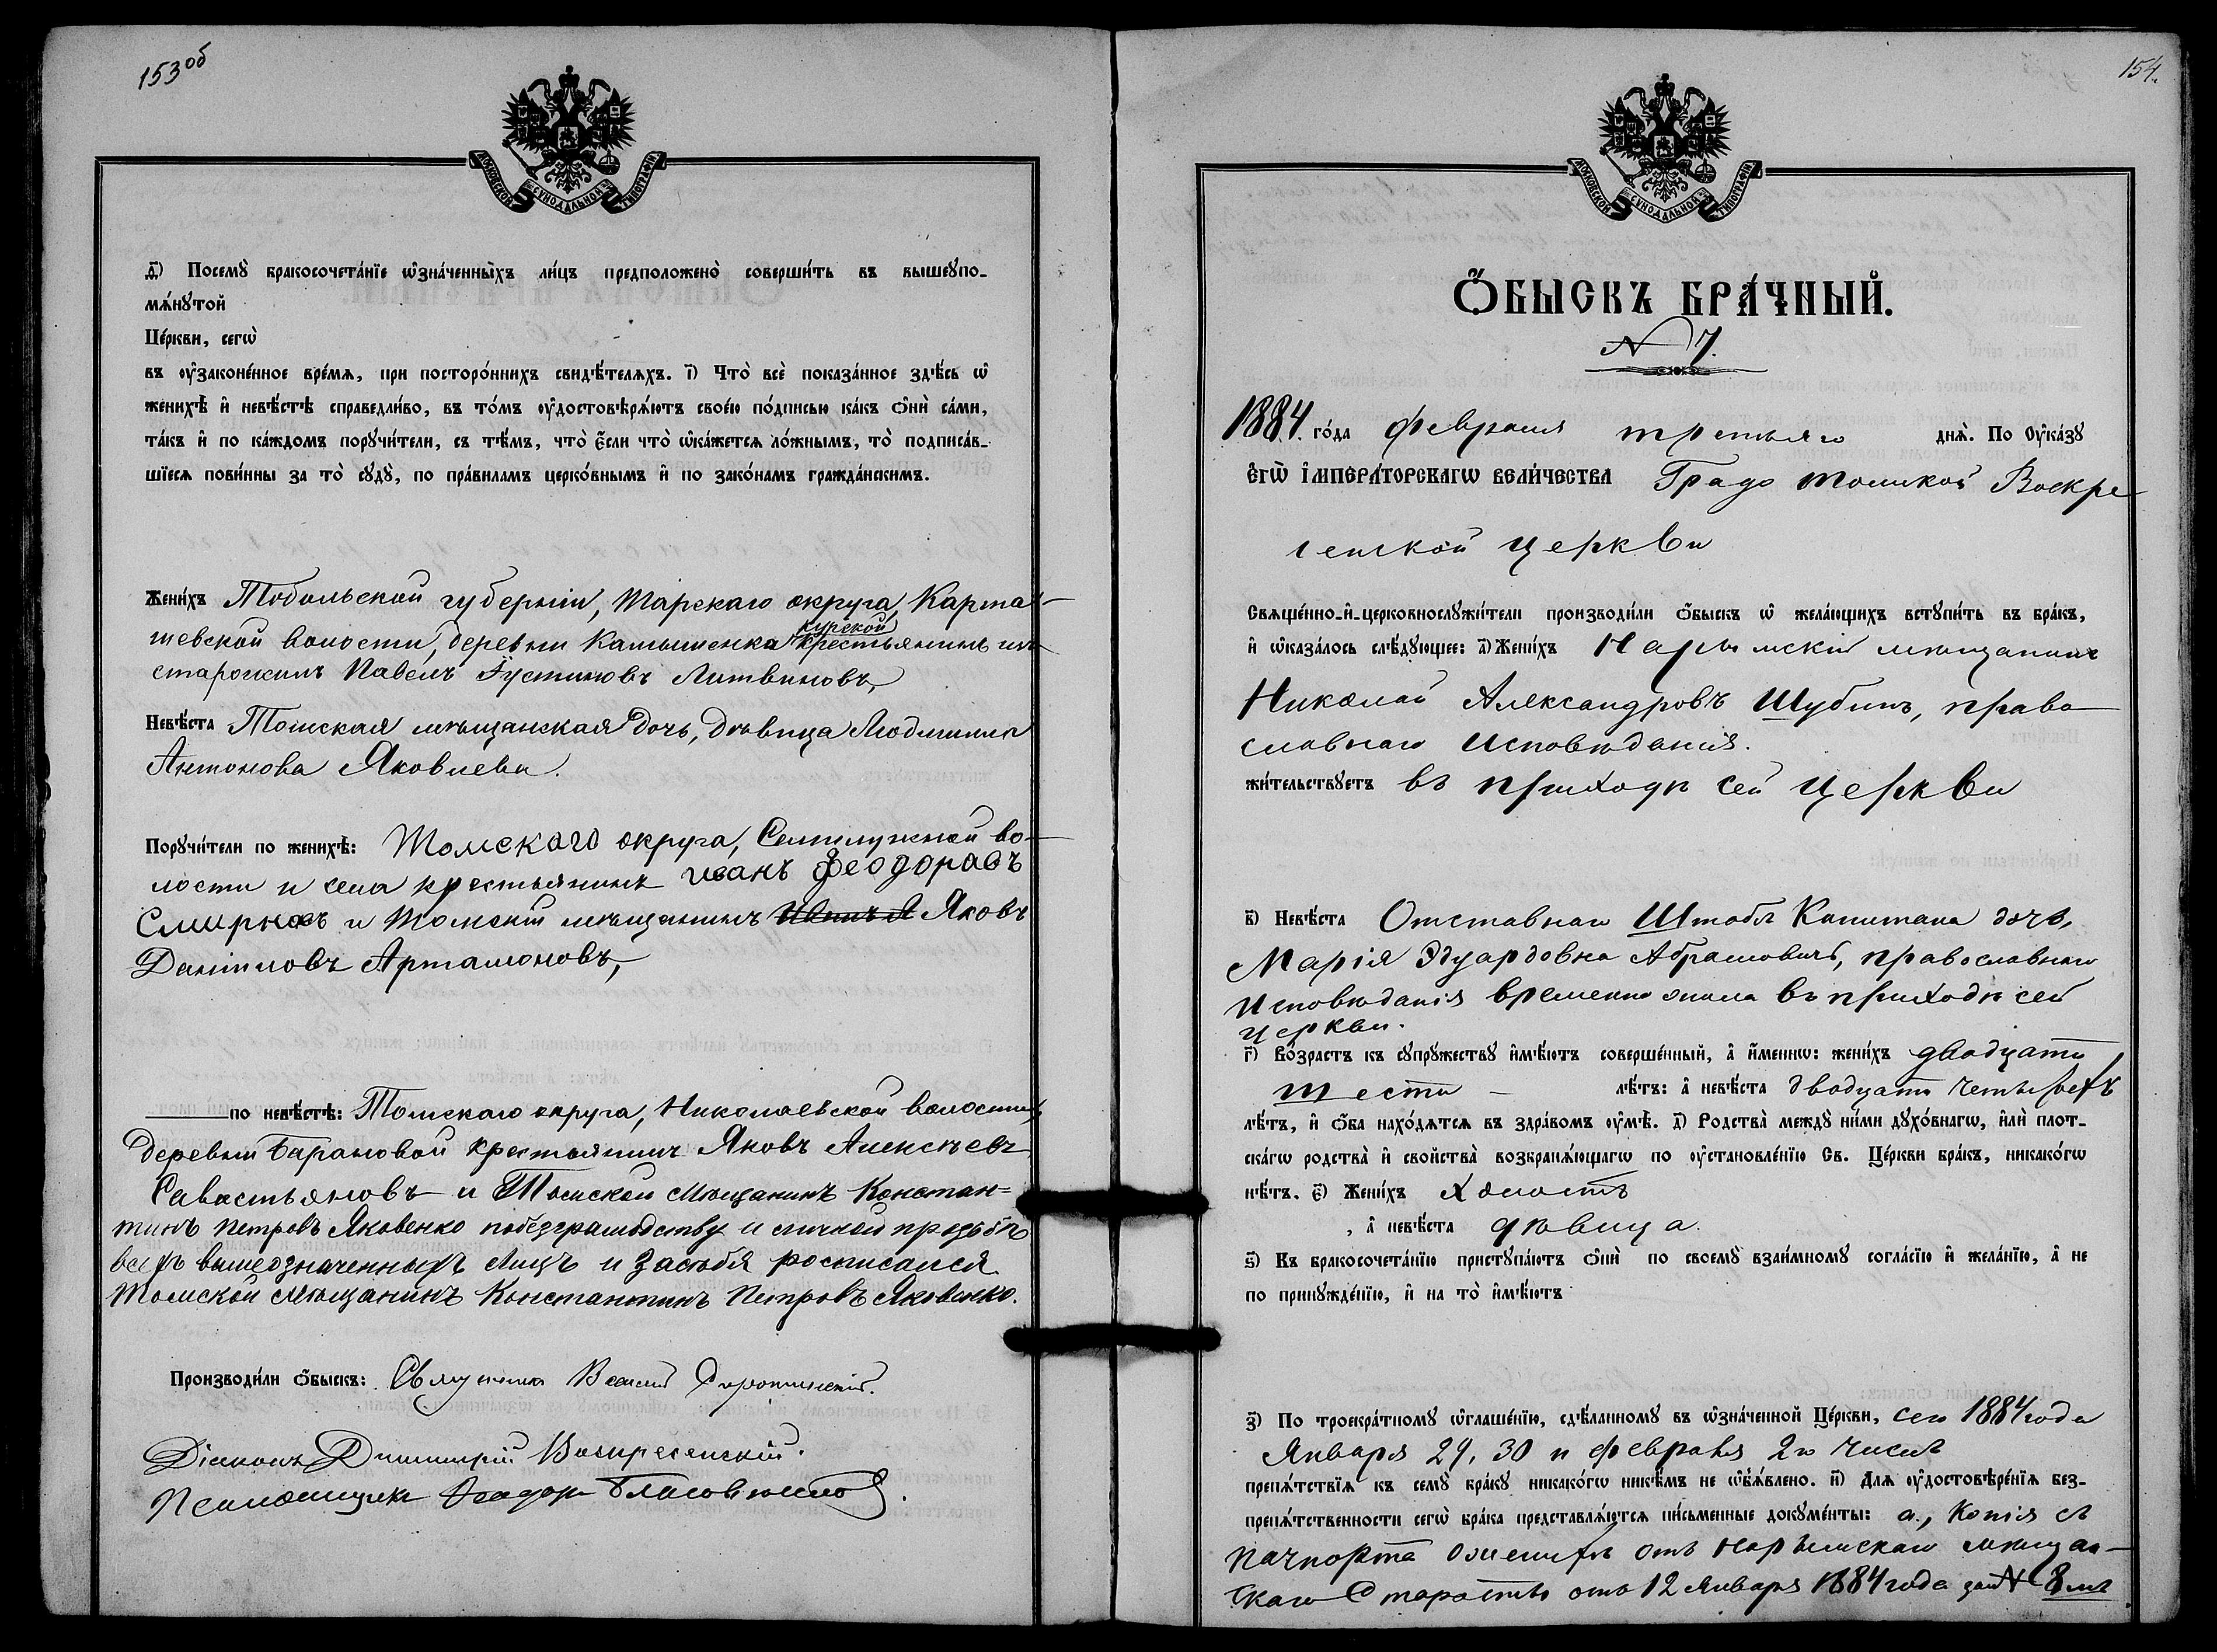 153об
МОСКОВСКОЙ СѴНОДАЛЬНОЙ ТИПОГРАФІИ
д҃) Посемꙋ̀ бракосочета́нїе ѡ҆зна́ченныхъ ли́цъ предположено̀ соверши́ть въ вышеꙋпо-
мѧ́нꙋтой
Це́ркви, сегѡ̀
въ ᲂу҆законе́нное вре́мѧ, при посторо́ннихъ свидѣ́телѧхъ. і҃) Что̀ всѐ показа́нное здѣ́сь ѡ҆
женихѣ̀ и҆ невѣ́стѣ справедли́во, въ то́мъ ᲂу҆достовѣрѧ́ютъ свое́ю по́дписью ка́къ ѻ҆нѝ са́ми,
та́къ и҆ по ка́ждомъ порꙋчи́тели, съ тѣ́мъ, что̀ є҆́сли что̀ ѡ҆ка́жетсѧ ло́жнымъ, то̀ подписа́в-
шїесѧ пови́нны за то̀ сꙋдꙋ̀, по пра́виламъ церко́внымъ и҆ по зако́намъ гражда́нскимъ.
Жени́хъ Тобольской губерніи, Тарскаго округа, Карта-
шевской волости, деревни Камышенка курской крестьянинъ изъ
старожилъ Павелъ Іустиновъ Литвиновъ,
Невѣ́ста Томская мѣщанская дочь, дѣвица Людмила
Антонова Яковлева.
Порꙋчи́тели по женихѣ̀: Томского округа, Семилужной во-
лости и села крестьянинъ иванъ феодоравъ
Смирновъ и Томскій мѣщанинъ Яковъ
Даніиловъ Артамоновъ,
по невѣ́стѣ: Томскаго округа, Николаевской волости,
деревни Барановой крестьянинъ Яковъ Алексѣевъ
Савостьяновъ и Томской Мѣщанинъ Констан=
тинъ Петровъ Яковенко побезграмодству и личной прозьбѣ
всехъ вышеозначенныхъ Лицъ и Засебя росписался
Томской Мѣщанинъ Константинъ Петровъ Яковенко.
Производи́ли ѻ҆́быскъ: Священникъ Василій
Діаконъ Димитрій Воскресенскій.
Псаломщикъ Феодоръ
154.
МОСКОВСКОЙ СѴНОДАЛЬНОЙ ТИПОГРАФІИ
Ѻ҆́БЫСКЪ БРА́ЧНЫЙ.
№ 7.
1884. го́да февраля третьяго днѧ̀. По Оу҆ка́зꙋ
Є҆ГѠ̀ І҆МПЕРА́ТОРСКАГѠ ВЕЛИ́ЧЕСТВА Градо Томской Воскре
сенской церкви
Свѧще́нно-и҆-церковнослꙋжи́тели производи́ли ѻ҆́быскъ ѡ҆ жела́ющихъ встꙋпи́ть въ бра́къ,
и҆ ѡ҆каза́лось слѣ́дꙋющее: а҃) Жени́хъ Нарымскій мѣщанинъ
Николай Александровъ Шубинъ, право
славнаго Исповѣданія.
жи́тельствꙋетъ въ приходѣ сей церкви
в҃) Невѣ́ста Отставнаго Штабъ Капитана дочь,
Марія Эдуардовна Абрамовичъ, православнаго
Исповѣданія временно жила въ приходѣ сей
церкви.
г҃) Во́зрастъ къ сꙋпрꙋ́жествꙋ и҆мѣ́ютъ соверше́нный, а҆ и҆́меннѡ: жени́хъ двадцати
шести лѣ́тъ: а҆ невѣ́ста двадцати четырехъ
лѣ́тъ, и҆ ѻ҆́ба нахо́дѧтсѧ въ здра́вомъ ᲂу҆мѣ̀. д҃) Родства̀ междꙋ̀ ни́ми дꙋхо́внагѡ, и҆лѝ плот-
ска́гѡ родства̀ и҆ свойства̀ возбранѧ́ющагѡ по ᲂу҆становле́нїю Св. Це́ркви бра́къ, никако́гѡ
нѣ́тъ. є҃) Жени́хъ холостъ
, а҆ невѣ́ста дѣвица.
ѕ҃) Къ бракосочета́нїю пристꙋпа́ютъ ѻ҆нѝ по своемꙋ̀ взаи́мномꙋ согла́сїю и҆ жела́нїю, а҆ не
по принꙋжде́нїю, и҆ на то̀ и҆мѣ́ютъ
з҃) По троекра́тномꙋ ѡ҆глаше́нїю, сдѣ́ланномꙋ въ ѡ҆зна́ченной Це́ркви, сего 1884 года
Января 29, 30 и февраля 2го числъ
препѧ́тствїѧ къ семꙋ̀ бра́кꙋ никако́гѡ никѣ́мъ не ѡ҆б̾ѧ́влено. и҃) Длѧ ᲂу҆достовѣре́нїѧ без-
препѧ́тственности сегѡ̀ бра́ка представлѧ́ютсѧ пи́сьменные докꙋме́нты: а., Копія съ
пачпорта женихъ отъ Нарымскаго мѣщан-
скаго Старосты отъ 12 Января 1884 года за № 8мъ